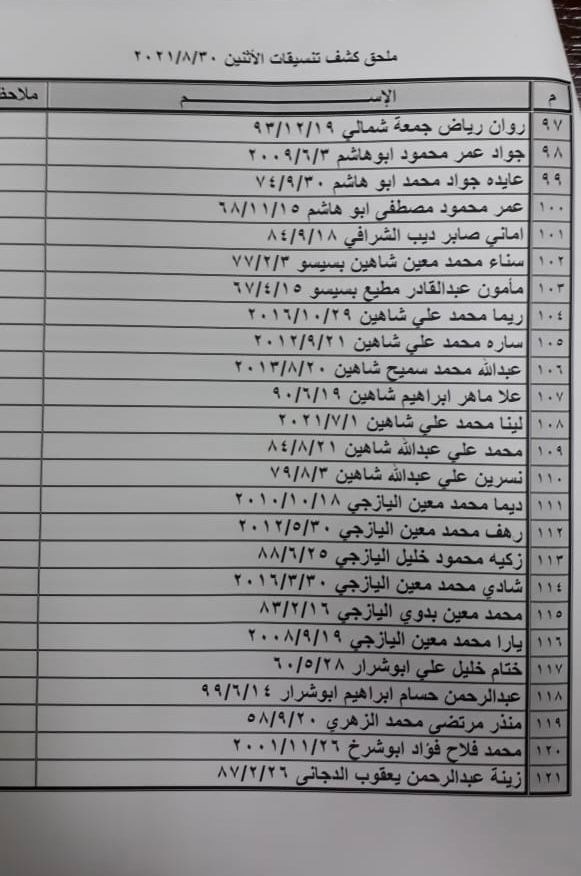 ملحق كشف تنسيقات الأثنين ٢٠٢١/٨/٣٠
م الإســـــــــم ملاحظ
٩٧ روان رياض جمعة شمالي ٩٣/١٢/١٩
٩٨ جواد عمر محمود ابوهاشم ٢٠٠٩/٦/٣
٩٩ عايده جواد محمد ابو هاشم ٧٤/٩/٣٠
١٠٠ عمر محمود مصطفى ابو هاشم ٦٨/١١/١٥
١٠١ اماني صابر ديب الشرافي ٨٤/٩/١٨
١٠٢ سناء محمد معين شاهين بسيسو ٧٧/٢/٣
١٠٣ مأمون عبدالقادر مطيع بسيسو ٦٧/٤/١٥
١٠٤ ريما محمد علي شاهين ٢٠١٦/١٠/٢٩
١٠٥ ساره محمد علي شاهين ٢٠١٢/٩/٢١
١٠٦ عبدالله محمد سميح شاهين ٢٠١٣/٨/٢٠
١٠٧ علا ماهر ابراهيم شاهين ٩٠/٦/١٩
١٠٨ لينا محمد علي شاهين ٢٠٢١/٧/١
١٠٩ محمد علي عبدالله شاهين ٨٤/٨/٢١
١١٠ نسرين علي عبدالله شاهين ٧٩/٨/٣
١١١ ديما محمد معين اليازجي ٢٠١٠/١٠/١٨
١١٢ رهف محمد معين اليازجي ٢٠١٢/٥/٣٠
١١٣ زكيه محمود خليل اليازجي ٨٨/٦/٢٥
١١٤ شادي محمد معين اليازجي ٢٠١٦/٣/٣٠
١١٥ محمد معين بدوي اليازجي ٨٣/٢/١٦
١١٦ يارا محمد معين اليازجي ٢٠٠٨/٩/١٩
١١٧ ختام خليل علي ابوشرار ٦٠/٥/٢٨
١١٨ عبدالرحمن حسام ابراهيم ابوشرار ٩٩/٦/١٤
١١٩ منذر مرتضى محمد الزهري ٥٨/٩/٢٠
١٢٠ محمد فلاح فؤاد ابوشرخ ٢٠٠١/١١/٢٦
١٢١ زينة عبدالرحمن يعقوب الدجاني ٨٧/٢/٢٦